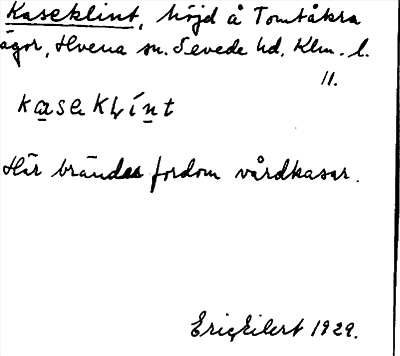 Kaseklint, höjd å Tomtåkra
ägor, Hvena sn. Sevede hd. Klm. l.
11.
kasekḷínt
Här brändes fordom vårdkasar.
Eric Eilert 1929.